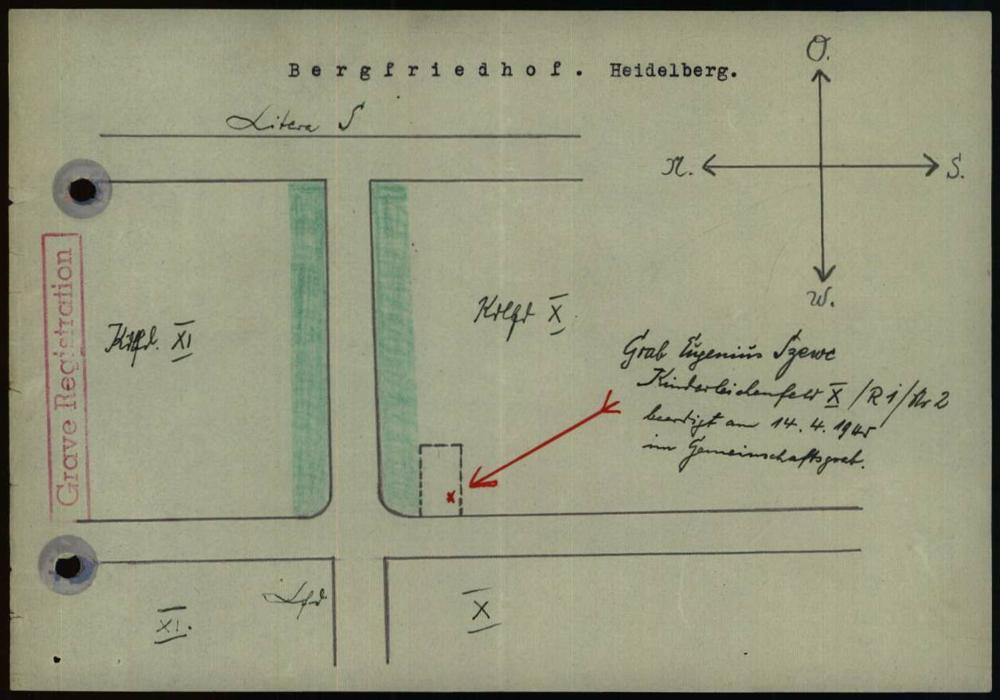 Bergfriedhof. Heidelberg.
O.
Litera S
N.
S.
W.
Grave Registration
Klfd. XI
Klfd X.
Grab Eugenius Szewc
Kinderleichenfeld X /R 1/Nr 2
beerdigt am 14.4.1945
im Gemeinschaftsgrab.
x
XI.
Lfd
X